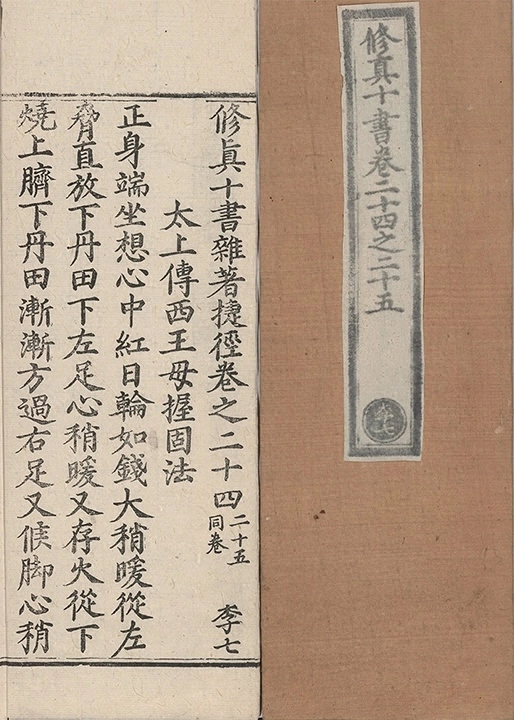 修真十書卷二十四之二十五
修眞十書雜著捷徑卷之二十四 二十五同卷 李七
太上傳西王母握固法
正身端坐想心中紅日輪如錢大稍暖從左
脅直放下丹田下左足心稍暖又存火從下
燒上臍下丹田漸漸方過右足又候脚心稍